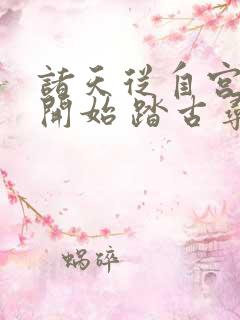 諸天從自宮
開始 踏古尋
蝸碎